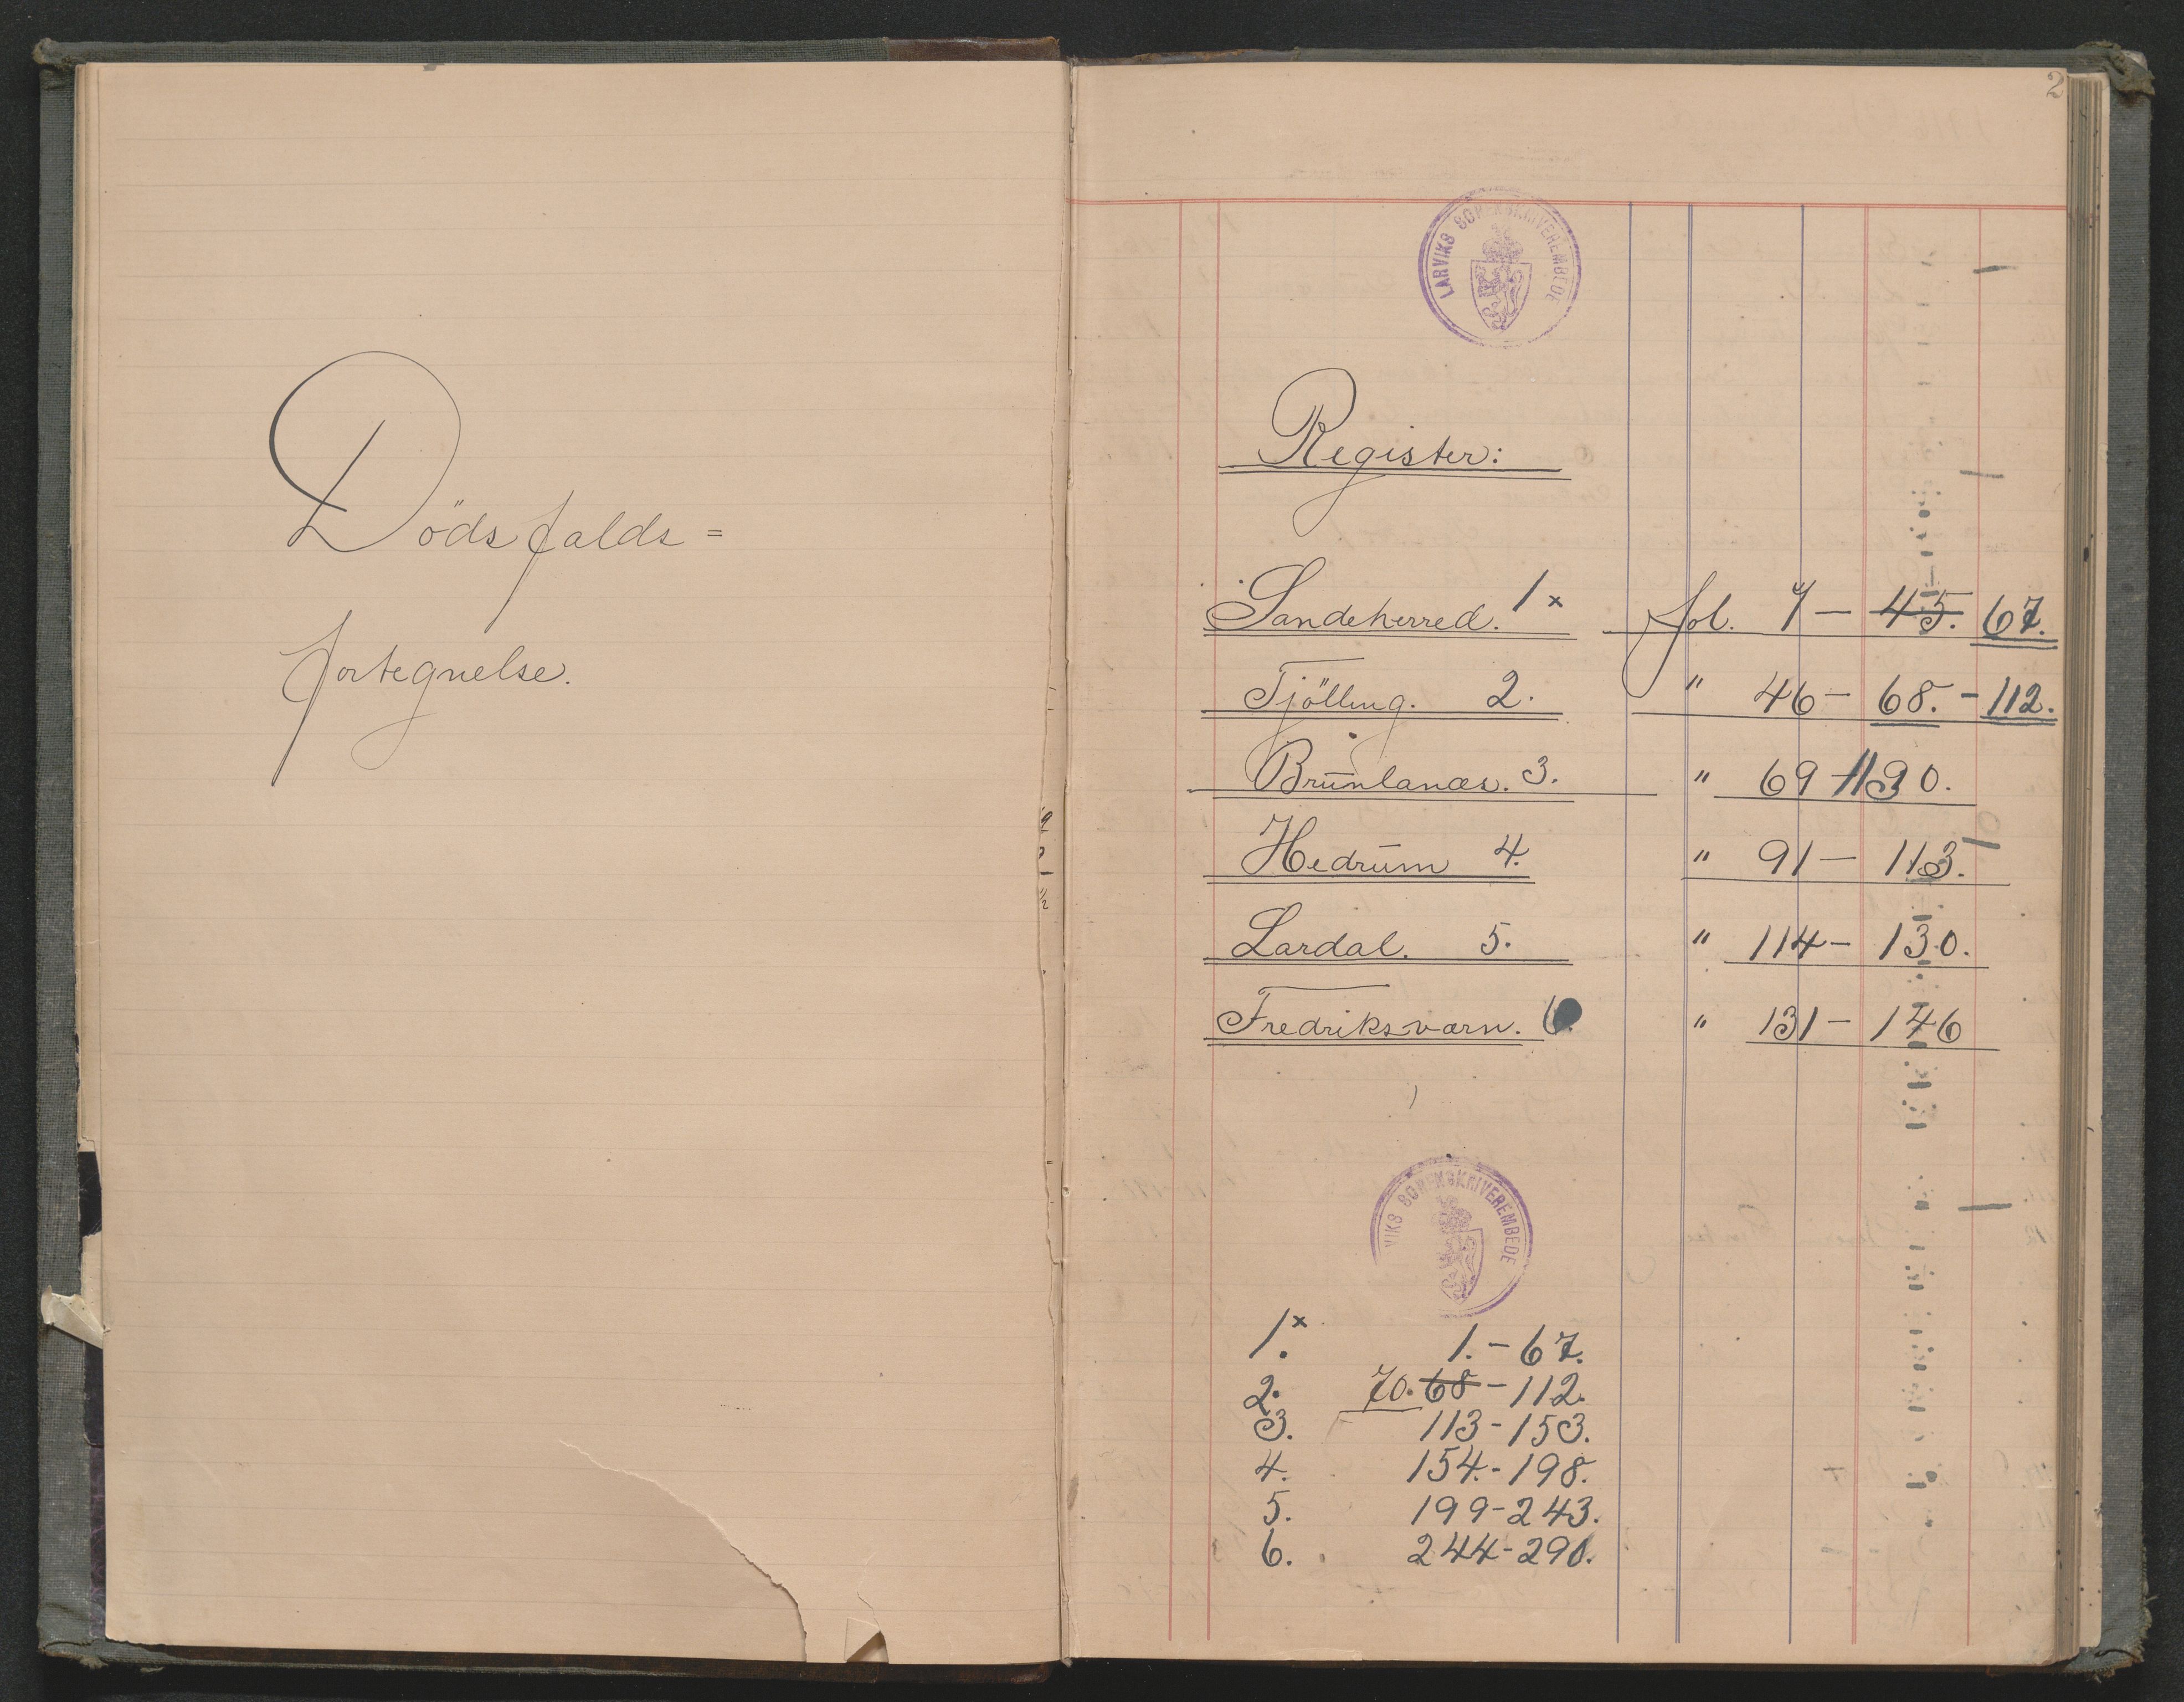 Dödsfalds=
fortegnelse.
2
LARVIKS SORENSKRIVEREMBEDE
Register:
Sandeherred. 1x fol. 1 — 45. 67.
Tjölling. 2. " 46 — 68. - 112.
Brunlanæs. 3. " 69 - 1190.
Hedrum 4. " 91 — 113.
Lardal. 5. " 114 — 130.
Fredriksværn. 6. " 131 — 146
VIKS SORENSKRIVEREMBEDE
1.x 1. - 67.
2. 70. 68 - 112.
3. 113 - 153.
4. 154. - 198.
5. 199 - 243.
6. 244 - 290.